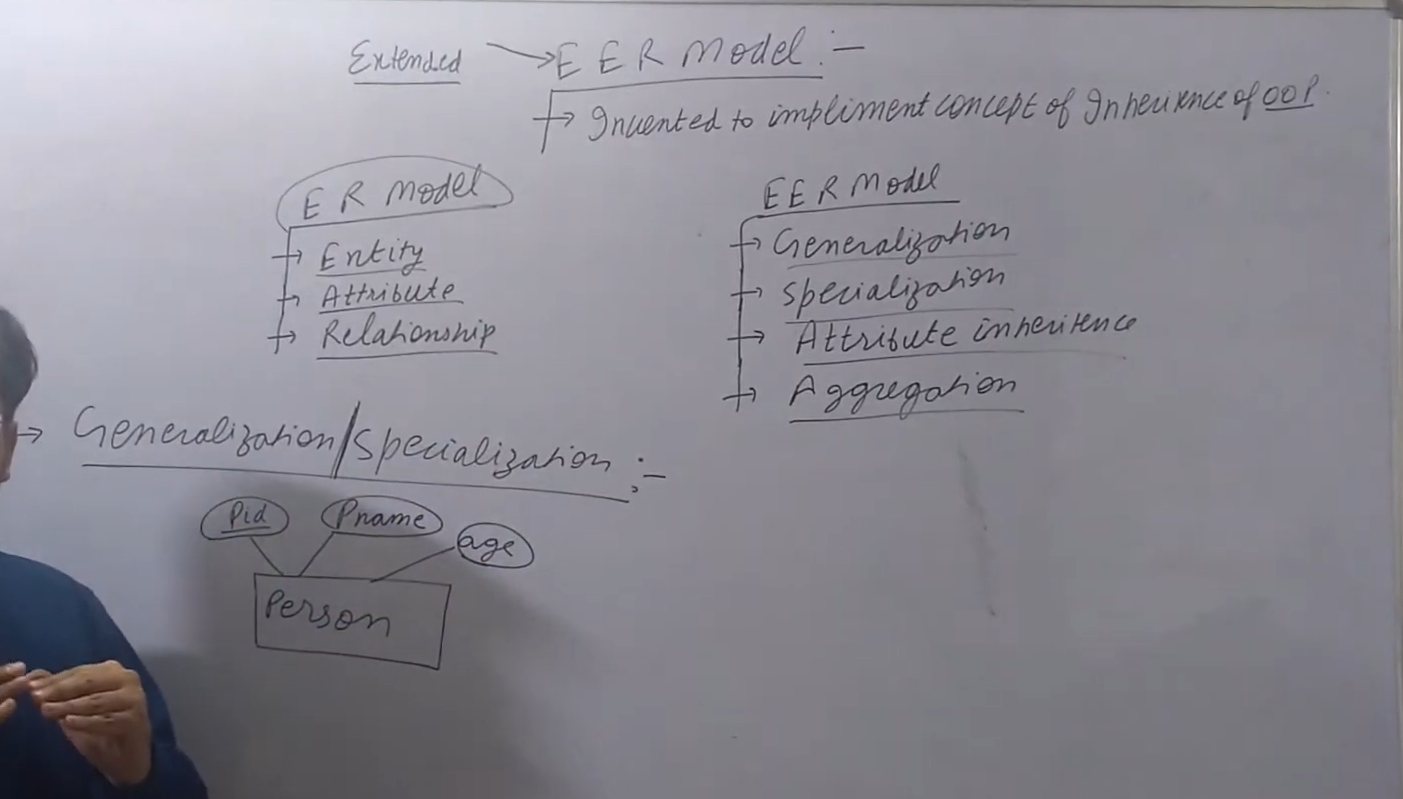 Extended → EER Model :-
→ Invented to impliment concept of Inherience of OOP.
ER Model
→ Entity
→ Attribute
→ Relationship
EER Model
→ Generalization
→ specialization
→ Attribute inheritence
→ Aggregation
→ Generalization/specialization :-
Pid Pname age
Person